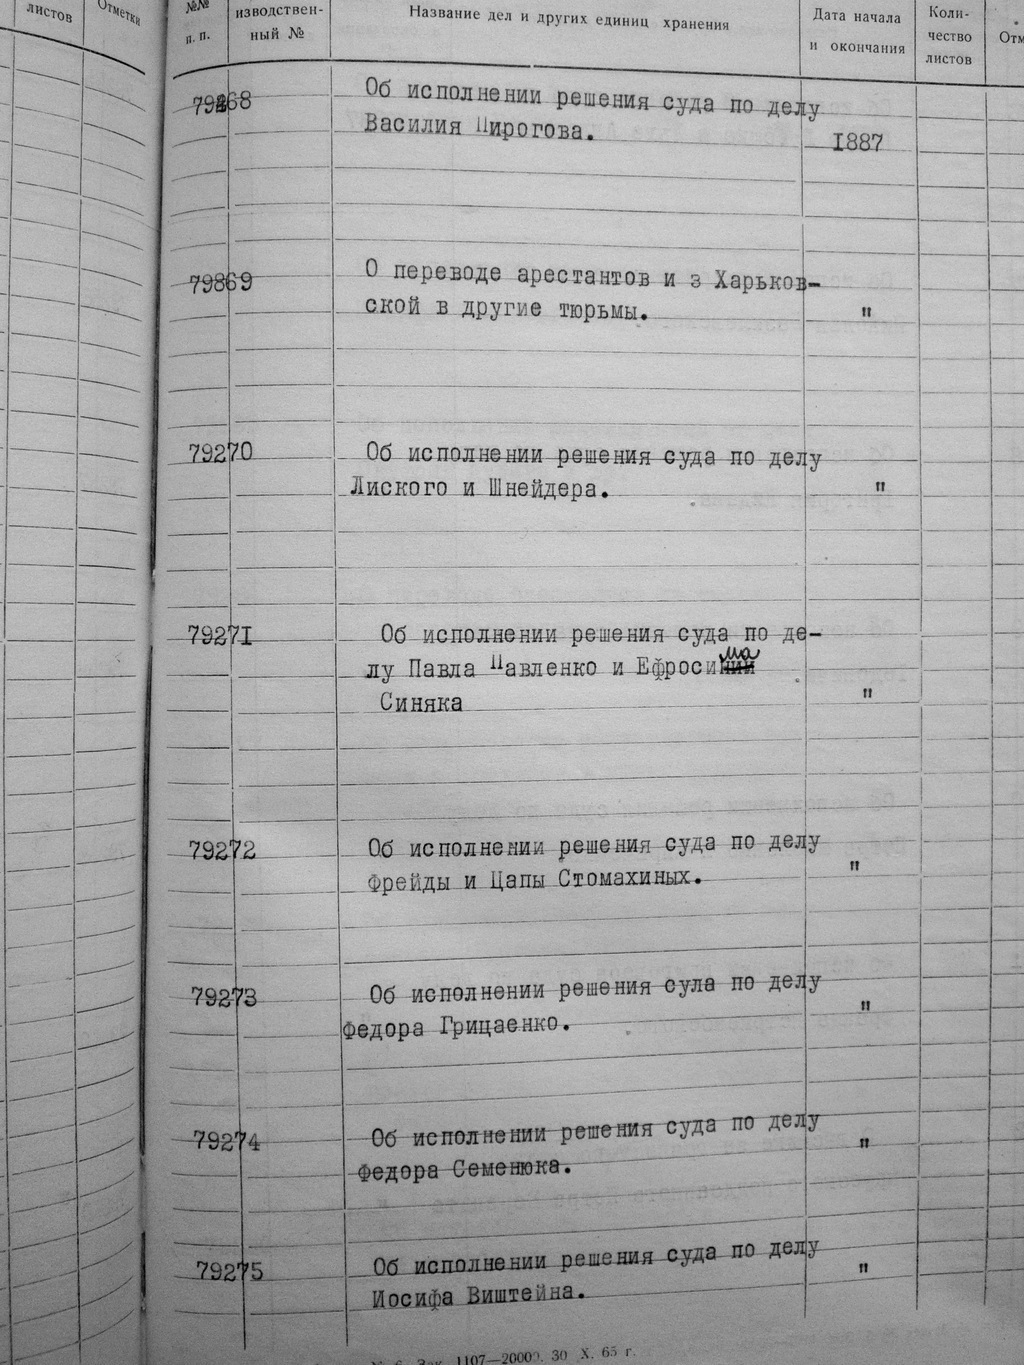 листов
Отметки
№№
п. п.
изводствен-
ный №
Название дел и других единиц хранения
Дата начала
и окончания
Коли-
чество
листов
Отм
79268
Об исполнении решения суда по делу
Василия Пирогова.
1887
79869
О переводе арестантов и з Харьков-
ской в другие тюрьмы.
"
79270
Об исполнении решения суда по делу
Лиского и Шнейдера.
"
79271
Об исполнении решения суда по де-
лу Павла Павленко и Ефросима
Синяка
"
79272
Об исполнении решения суда по делу
Фрейды и Цапы Стомахиных.
"
79273
Об исполнении решения сула по делу
Федора Грицаенко.
"
79274
Об исполнении решения суда по делу
Федора Семенюка.
"
79275
Об исполнении решения суда по делу
Иосифа Виштейна.
"
Зак. 1107—20000. 30 X. 65 г.